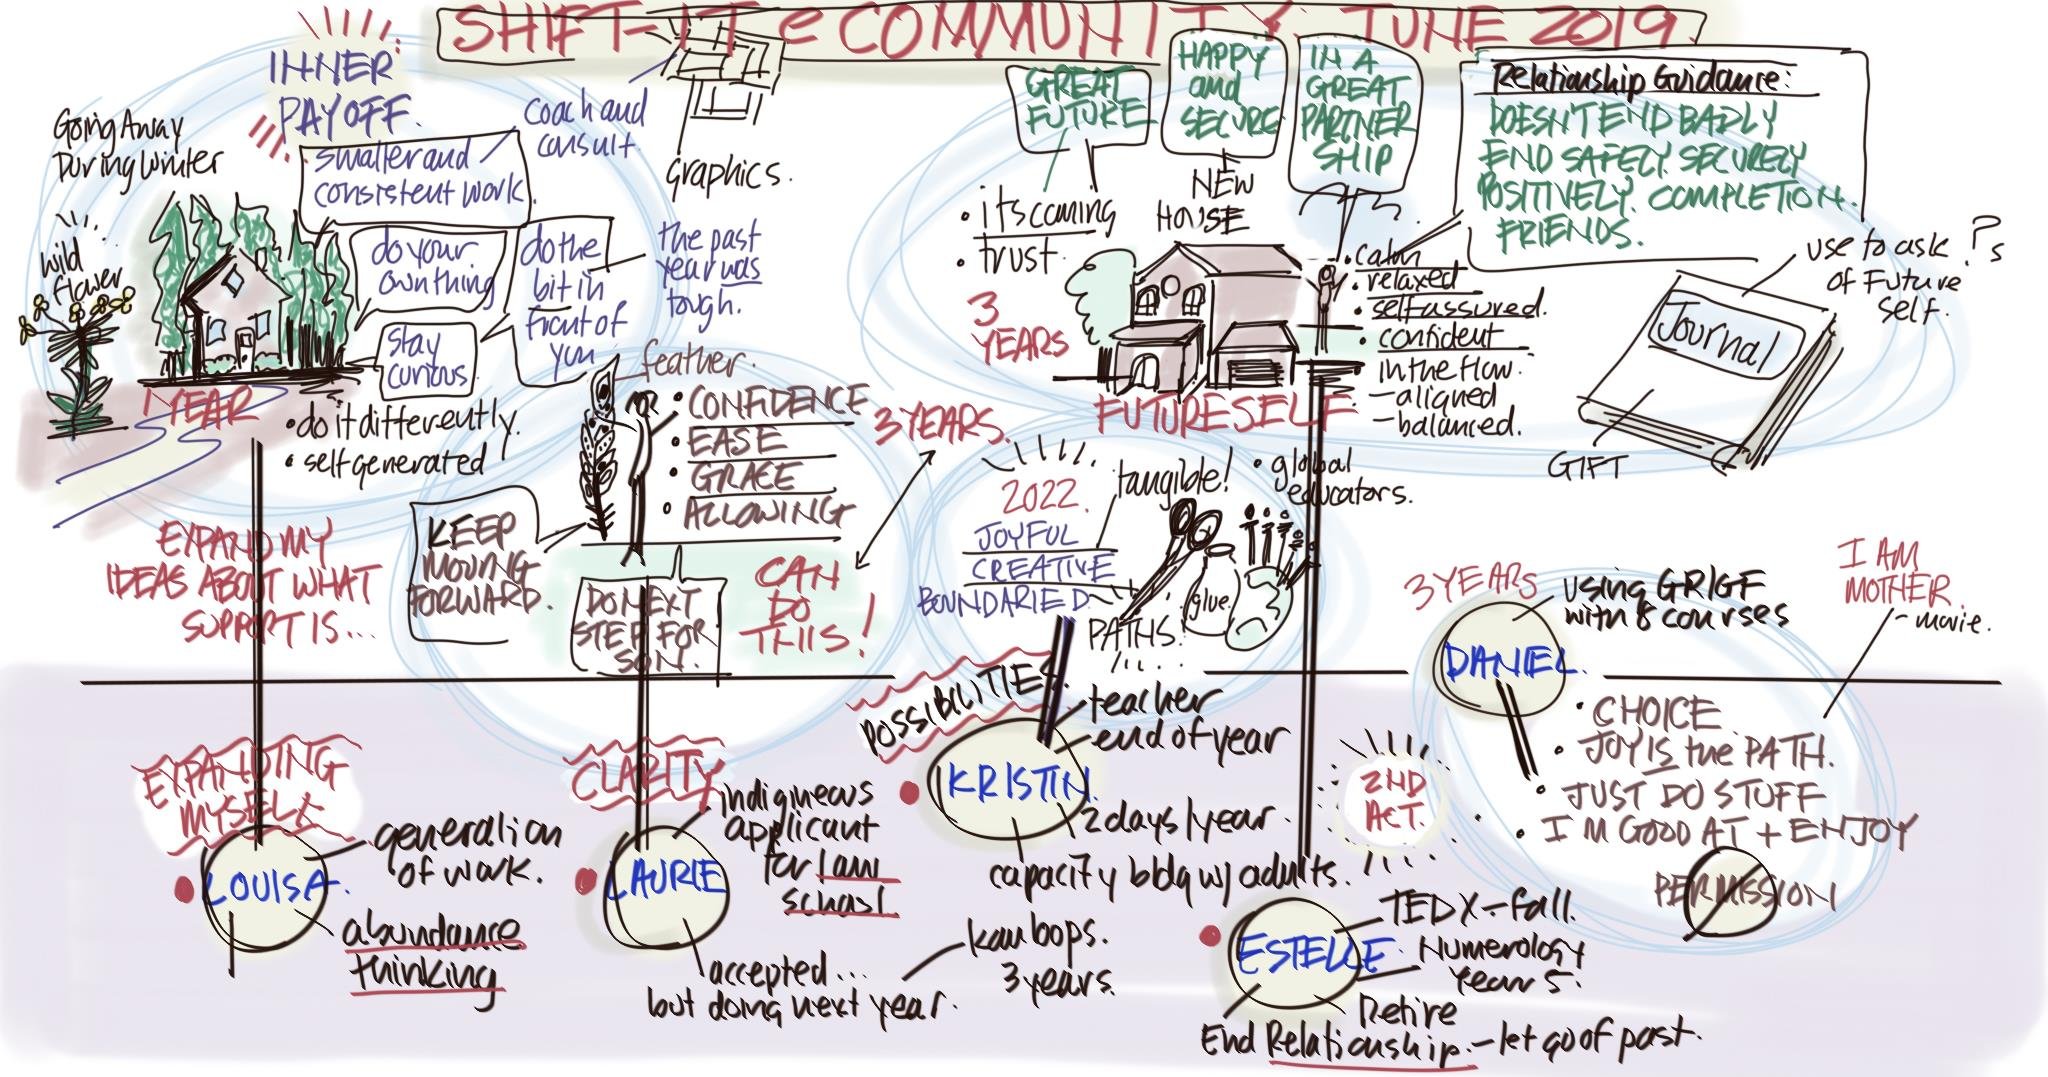 SHIFT-IT eCOMMUNITY. JUNE 2019
INNER
PAYOFF.
Going Away
During Winter
wild
flower
smaller and
consistent work.
coach and
consult.
graphics.
do your
own thing
do the
bit in
front of
you
the past
year was
tough.
stay
curious
1 YEAR
• do it differently.
• self generated
EXPAND MY
IDEAS ABOUT WHAT
SUPPORT IS...
feather.
• CONFIDENCE
• EASE
• GRACE
• ALLOWING
3 YEARS.
KEEP
MOVING
FORWARD.
DO NEXT
STEP FOR
SON.
CAN
DO
THIS!
GREAT
FUTURE
HAPPY
and
SECURE
IN A
GREAT
PARTNER
SHIP
Relationship Guidance:
DOESN'T END BADLY
END SAFELY. SECURELY
POSITIVELY. COMPLETION.
FRIENDS.
• its coming
• trust
NEW
HOUSE
3
YEARS
FUTURE SELF
• calm
• relaxed
• self assured.
• confident
in the flow.
- aligned
- balanced.
use to ask ?s
of Future
self.
Journal
GIFT
2022.
JOYFUL
CREATIVE
BOUNDARIED
tangible!
• global
educators.
glue
PATHS.
3 YEARS
using GRIGF
with 8 courses
I AM
MOTHER
- movie.
DANIEL
• CHOICE
• JOY IS the PATH.
• JUST DO STUFF
• I'M GOOD AT + ENJOY
PERMISSION
EXPANDING
MYSELF
LOUISA.
generation
of work.
abundance
thinking
CLARITY
LAURIE
indigineous
applicant
for law
school
accepted...
but doing next year.
Kamloops.
3 years.
POSSIBILITIES
KRISTIN
teacher
end of year
2 days/year
capacity bldg w/ adults.
2ND
ACT.
ESTELLE
TEDX - fall.
Numerology
Year 5.
Retire
End Relationship. - let go of past.